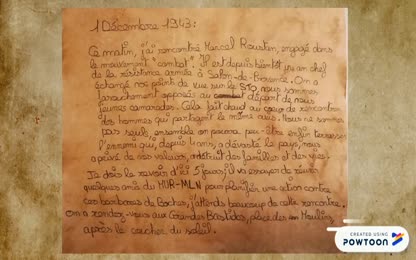 1 Décembre 1943:
Ce matin, j'ai rencontré Marcel Roustan, engagé dans
le mouvement "combat". Il est depuis bientôt un an chef
de la résistance armée à Salon-de-Provence. On a
échangé nos points de vue sur le STO, nous sommes
farouchement opposés au départ de nous
jeunes camarades. Cela fait chaud au coeur de rencontrer
des hommes qui partagent le même avis. Nous ne sommes
pas seuls, ensemble on pourra peut-être enfin terrasser
l'ennemi qui, depuis 4 ans, a dévasté le pays, nous
a privé de nos valeurs, a détruit des familles et des vies.
Je dois le revoir d'ici 5 jours, il va essayer de réunir
quelques amis du MUR-MLN pour planifier une action contre
ces bonbons de Boches, j'attends beaucoup de cette rencontre.
On a rendez-vous aux Grandes Bastides, place des Moulins
après le coucher du soleil.
CREATED USING
POWTOON